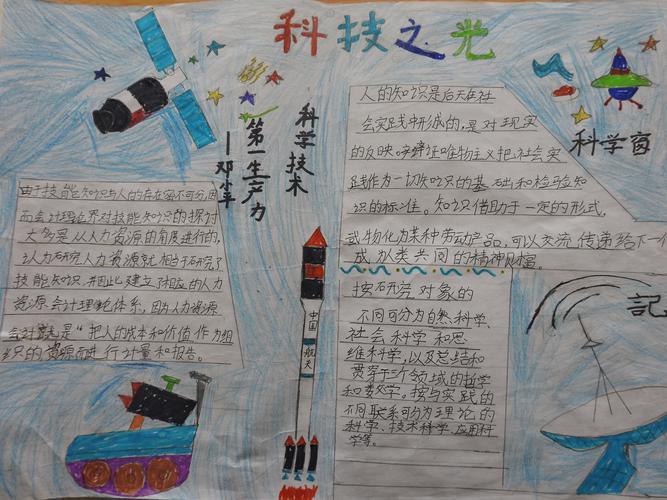 科技之光
科学技术
第一生产力
——邓小平
由于技能知识与人的存在密不可分,因
而会计理论界对技能知识的探讨
大多是从人力资源的角度进行的,
认为研究人力资源就相当于研究了
技能知识,并因此建立了相应的人力
资源会计理论体系。因为人力资源
会计就是“把人的成本和价值作为组
织的资源而进行计量和报告。
中国
航天
人的知识是后天在社
会实践中形成的,是对现实
的反映。辩证唯物主义把社会实
践作为一切知识的基础和检验知
识的标准。知识借助于一定的形式,
或物化为某种劳动产品,可以交流传递给下一代
成为人类共同的精神财富。
科学窗
按研究对象的
不同可分为自然科学、
社会科学和思
维科学,以及总结和
贯穿于个领域的哲学
和数学。按与实践的
不同联系可分为理论的
科学、技术科学、应用科
学等。
記